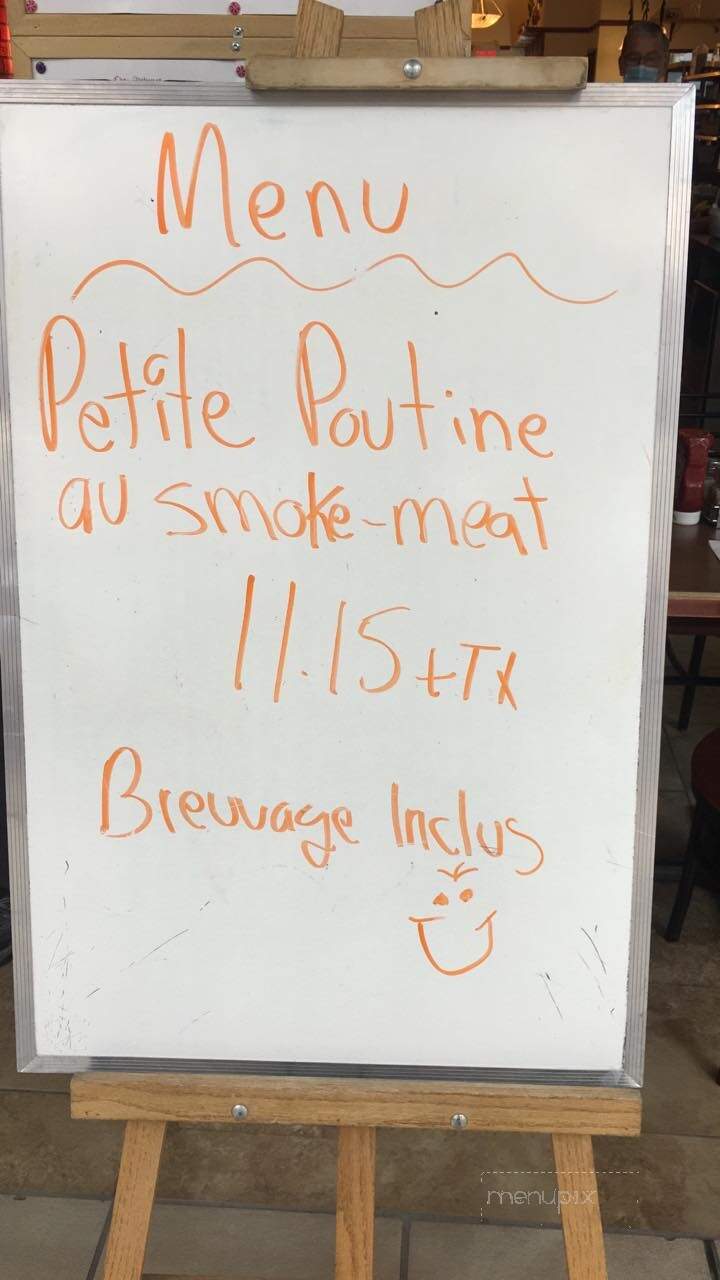 Menu
Petite Poutine
au smoke-meat
11.15 + Tx
Breuvage Inclus
menupix